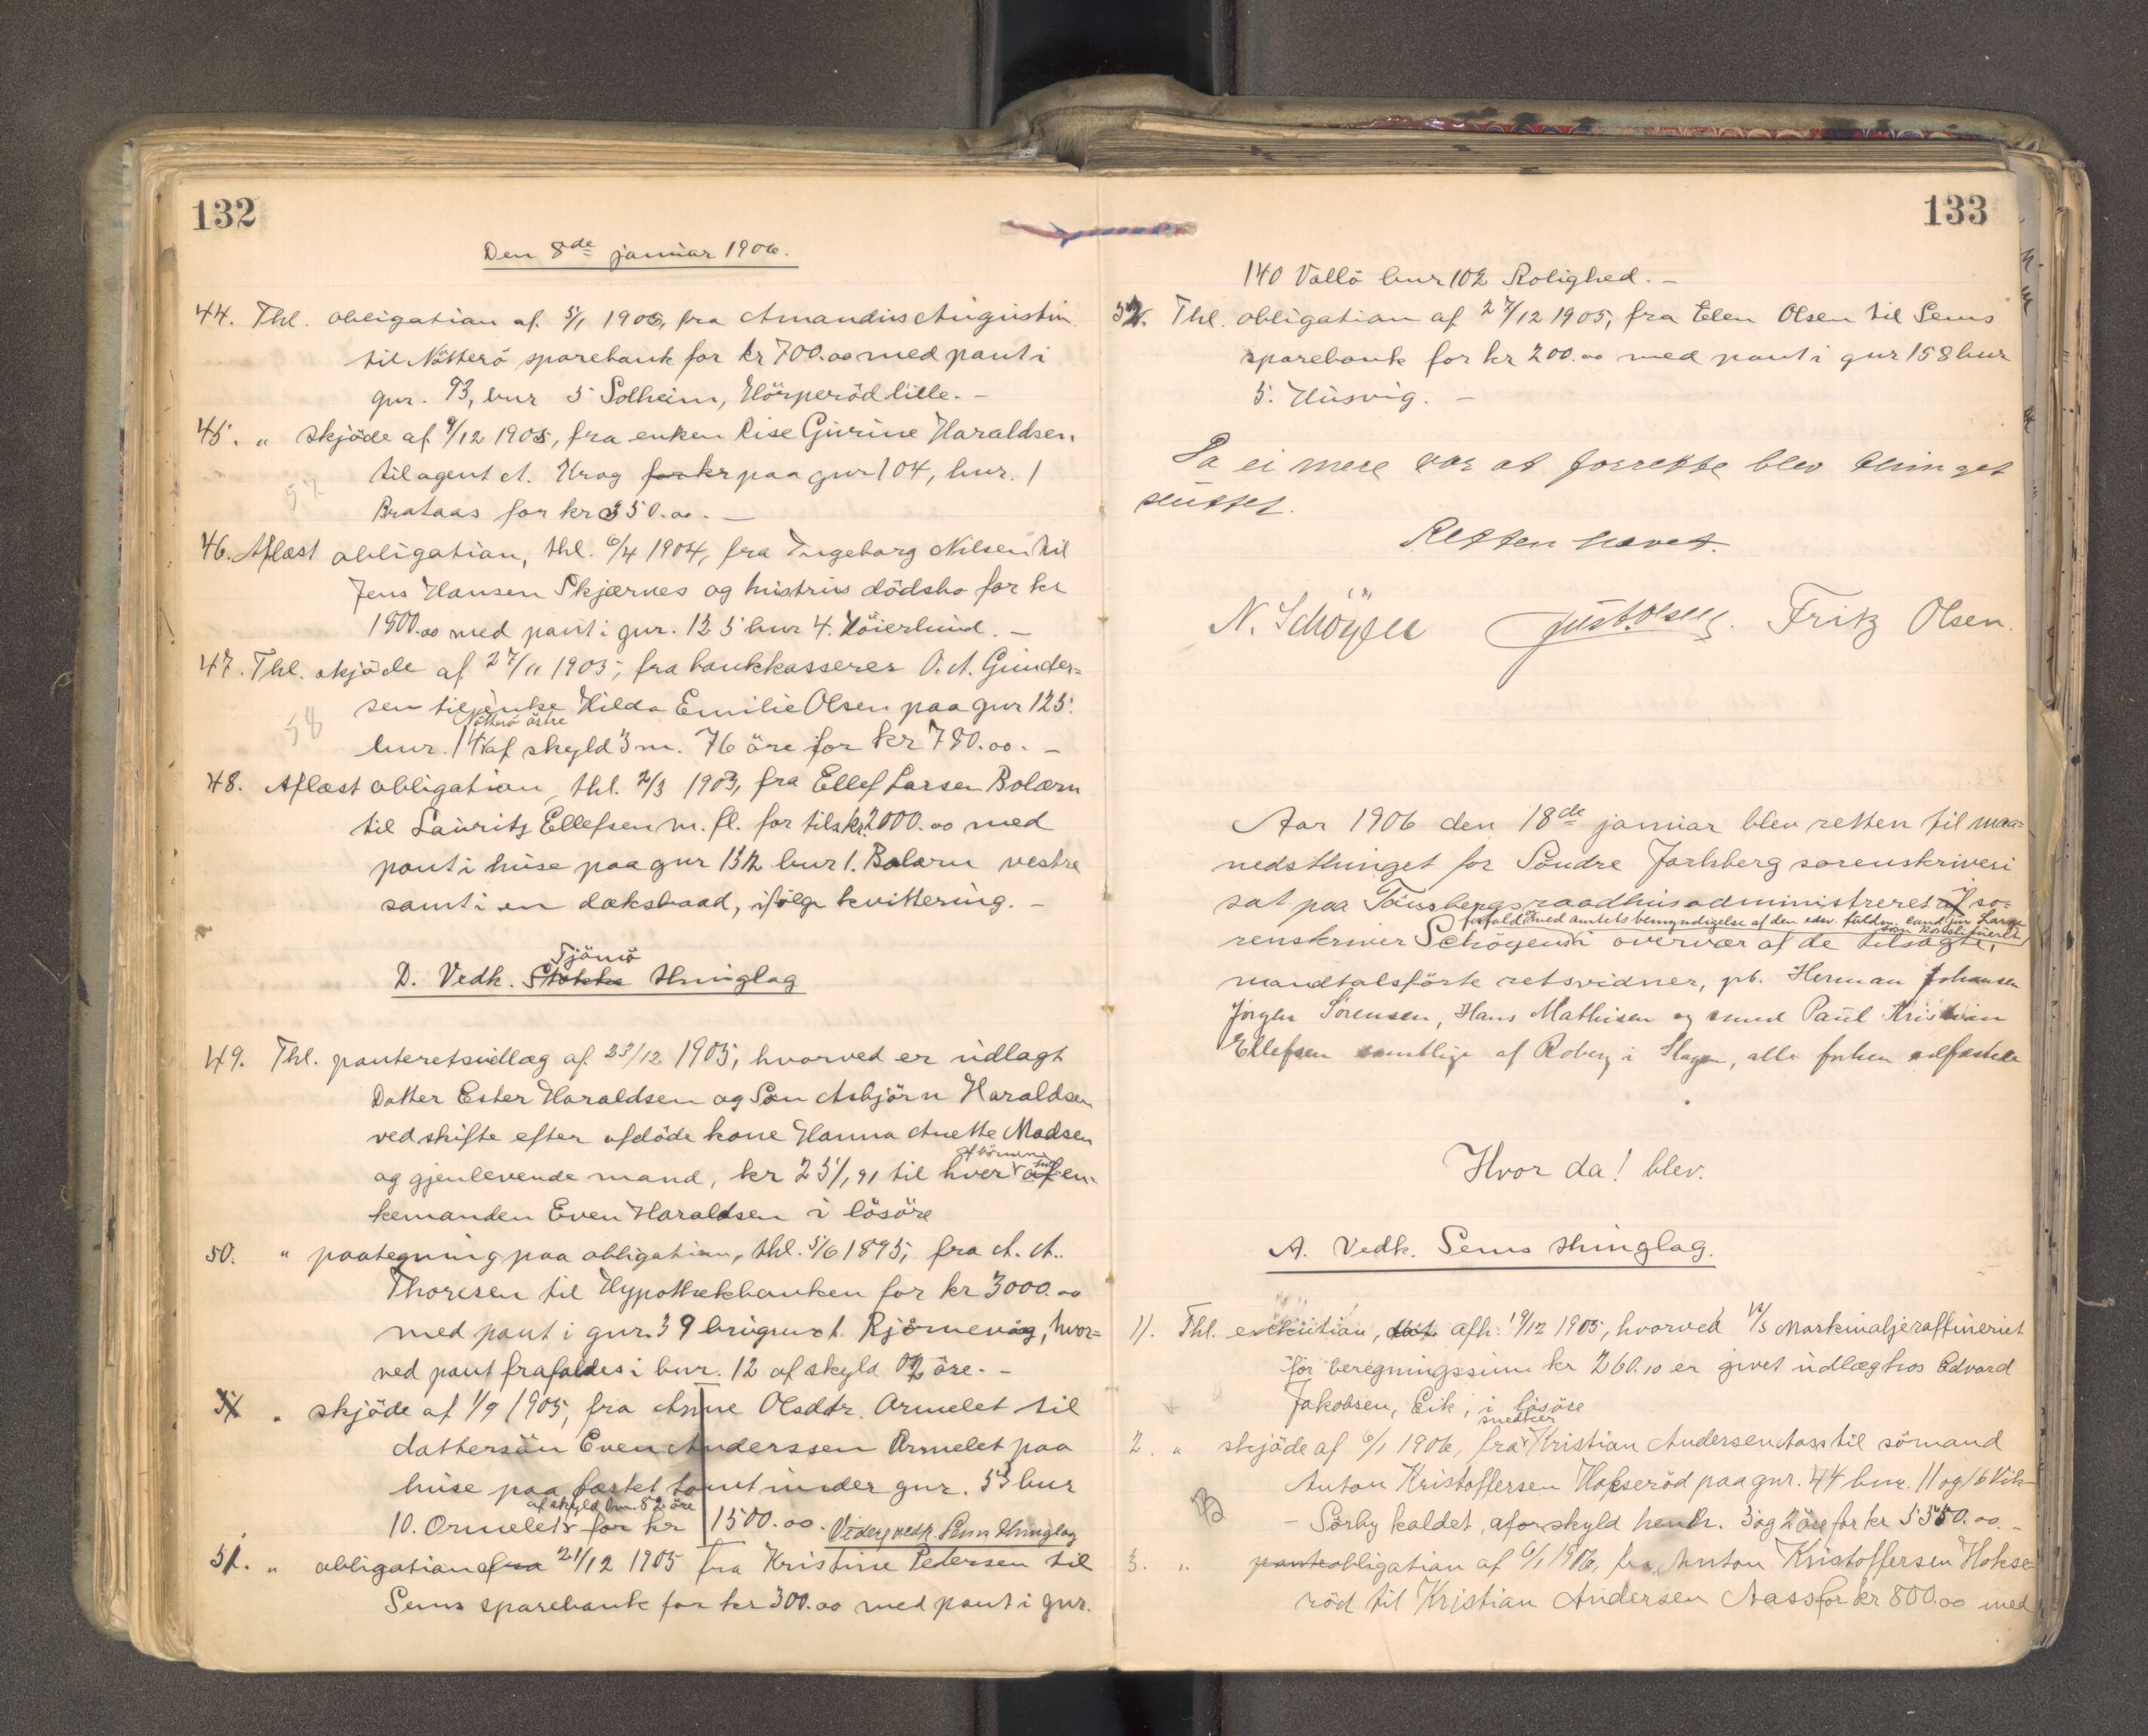 132
Den 8de januar 1906.
44. Thl. obligation af 5/1 1906, fra Amandus Augustin
til Nötterö sparebank for kr 700.00 med pant i
gnr. 93, bnr 5 Solheim, Hörperöd lille. -
45. " skjöde af 9/12 1905, fra enken Lise Gurine Haraldsen
til agent A. Krog for kr paa gnr 104, bnr. 1
Brataas for kr 350.00. -
46. Aflæst obligation, thl. 6/4 1904, fra Ingeborg Nilsen til
Jens Hansen Skjærnes og hustrus dödsbo for kr
1900.00 med pant i gnr. 125 bnr 4. Höierlund. -
47. Thl. skjöde af 27/11 1905, fra bankkasserer O. A. Gunder-
sen til enke Hilda Emilie Olsen paa gnr 125.
Nötterö östre
58
bnr. 14 af skyld 3 m. 76 öre for kr 780.00. -
48. Aflæst obligation, thl. 2/3 1903, fra Ellef Larsen Bolærn
til Lauritz Ellefsen m. fl. for tils kr. 2000.00 med
pant i huse paa gnr 132 bnr 1. Bolærn vestre
samt i en dæksbaad, ifölge kvittering. -
Tjömö
D. Vedk. Stokke thinglag
49. Thl. panteretsudlæg af 23/12 1905, hvorved er udlagt
Datter Ester Haraldsen og Sön Asbjörn Haraldsen
ved skifte efter afdöde kone Hanna Anette Madsen
af börnene
og gjenlevende mand, kr 251,91 til hver af en-
kemanden Even Haraldsen i lösöre
50. " paategning paa obligation, thl. 5/6 1895, fra A. A.
Thoresen til Hypothekbanken for kr 3000.00
med pant i gnr. 39 brugsno 1. Kjörnevig, hvor-
ved pant frafaldes i bnr. 12 af skyld 02 öre. -
51 " skjöde af 1/9 1905, fra Anne Olsdtr. Ormelet til
dattersön Even Anderssen Ormelet paa
huse paa fæstet tomt under gnr. 53 bnr
af skyld 82 öre
10. Ormelet for kr 1500.00. Videre vedk. Sems thinglag
51. " obligation af fra 21/12 1905 fra Kristine Pedersen til
Sems sparebank for kr 300.00 med pant i gnr.
133
140 Vallö bnr 102 Rolighed. -
52. Thl. obligation af 27/12 1905, fra Elen Olsen til Sems
sparebank for kr 200.00 med pant i gnr 158 bnr
5. Husvig. -
Da ei mere var at forrette blev thinget
sluttet.
Retten hævet.
N. Schöyen Just Olsen. Fritz Olsen.
Aar 1906 den 18de januar blev retten til maa-
nedsthinget for Söndre Jarlsberg sorenskriveri
sat paa Tönsbergs raadhus administreret af so-
forfald med amtets bemyndigelse af den edsv. fuldm. cand jur Lange
som konstitueret
renskriver Schöyens i overvær af de tilsagte,
mandtalsförte retsvidner, pb. Herman Johansen
Jörgen Sörensen, Hans Mathisen og smed Paul Kristian
Ellefsen samtlige af Roberg i Slagen, alle forhen edfæstede
Hvor da! blev.
A. Vedk. Sems thinglag.
1). Thl. exekution, dat. afh. 19/12 1905, hvorved A/S Maskinoljeraffineriet
for beregningssum kr 260.10 er givet udlæg hos Edvard
Jakobsen, Eik, i lösöre
snedker
2. " skjöde af 6/1 1906, fra Kristian Andersen Aass til sömand
Anton Kristoffersen Hokseröd paa gnr. 44 bnr. 11 og 16 Vik
- Sörby kaldet, af skyld henh. 3 og 2 öre for kr 5350.00. -
3. " panteobligation af 6/1 1906, fra Anton Kristoffersen Hokse-
röd til Kristian Andersen Aass for kr 800.00 med